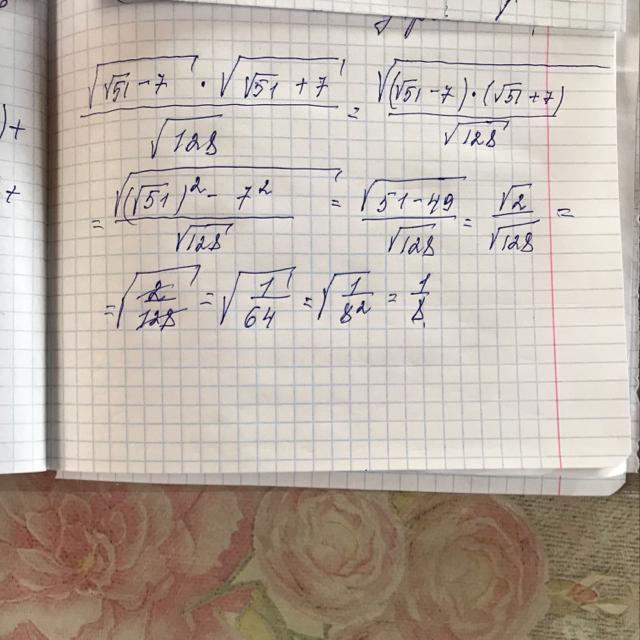 √(√51 - 7) · √(√51 + 7) / √128 = √((√51 - 7) · (√51 + 7)) / √128
= √((√51)² - 7²) / √128 = √(51 - 49) / √128 = √2 / √128 =
= √(2/128) = √(1/64) = √(1/8²) = 1/8